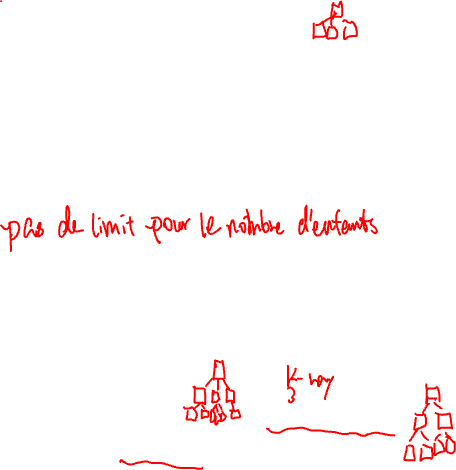 pas de limit pour le nombre d'enfants
K-
3